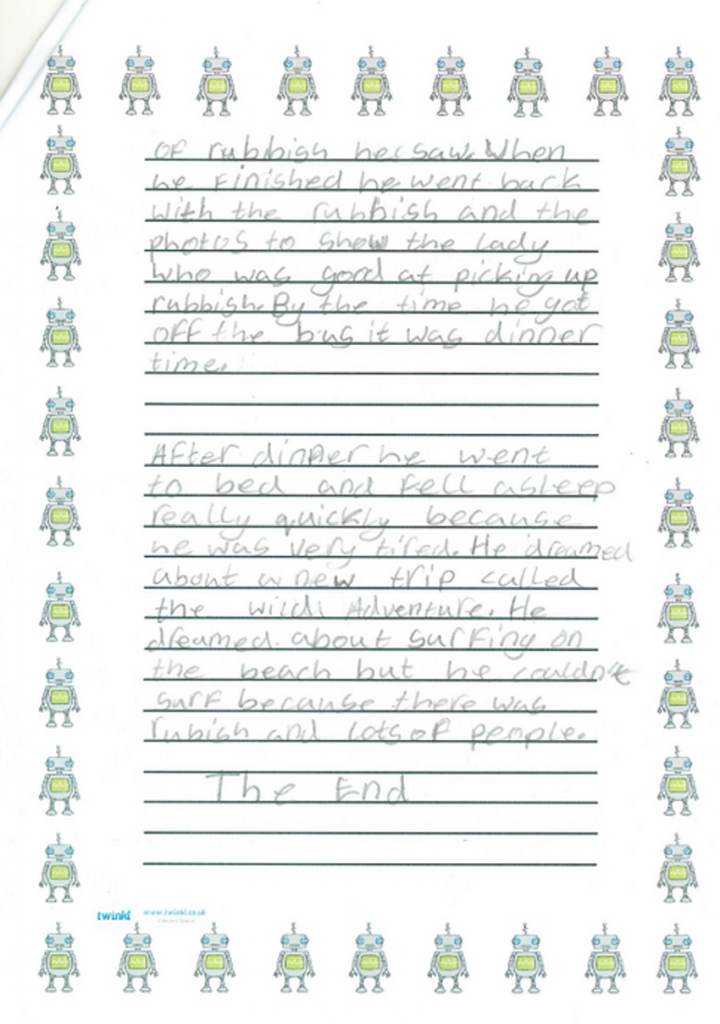 of rubbish he saw. When
he finished he went back
with the rubbish and the
photos to show the lady
who was good at picking up
rubbish. By the time he got
off the bus it was dinner
time.
After dinner he went
to bed and fell asleep
really quickly because
he was very tired. He dreamed
about a new trip called
the wild Adventure. He
dreamed about surfing on
the beach but he couldn't
surf because there was
rubish and lots of people.
The End
twinkl www.twinkl.co.uk